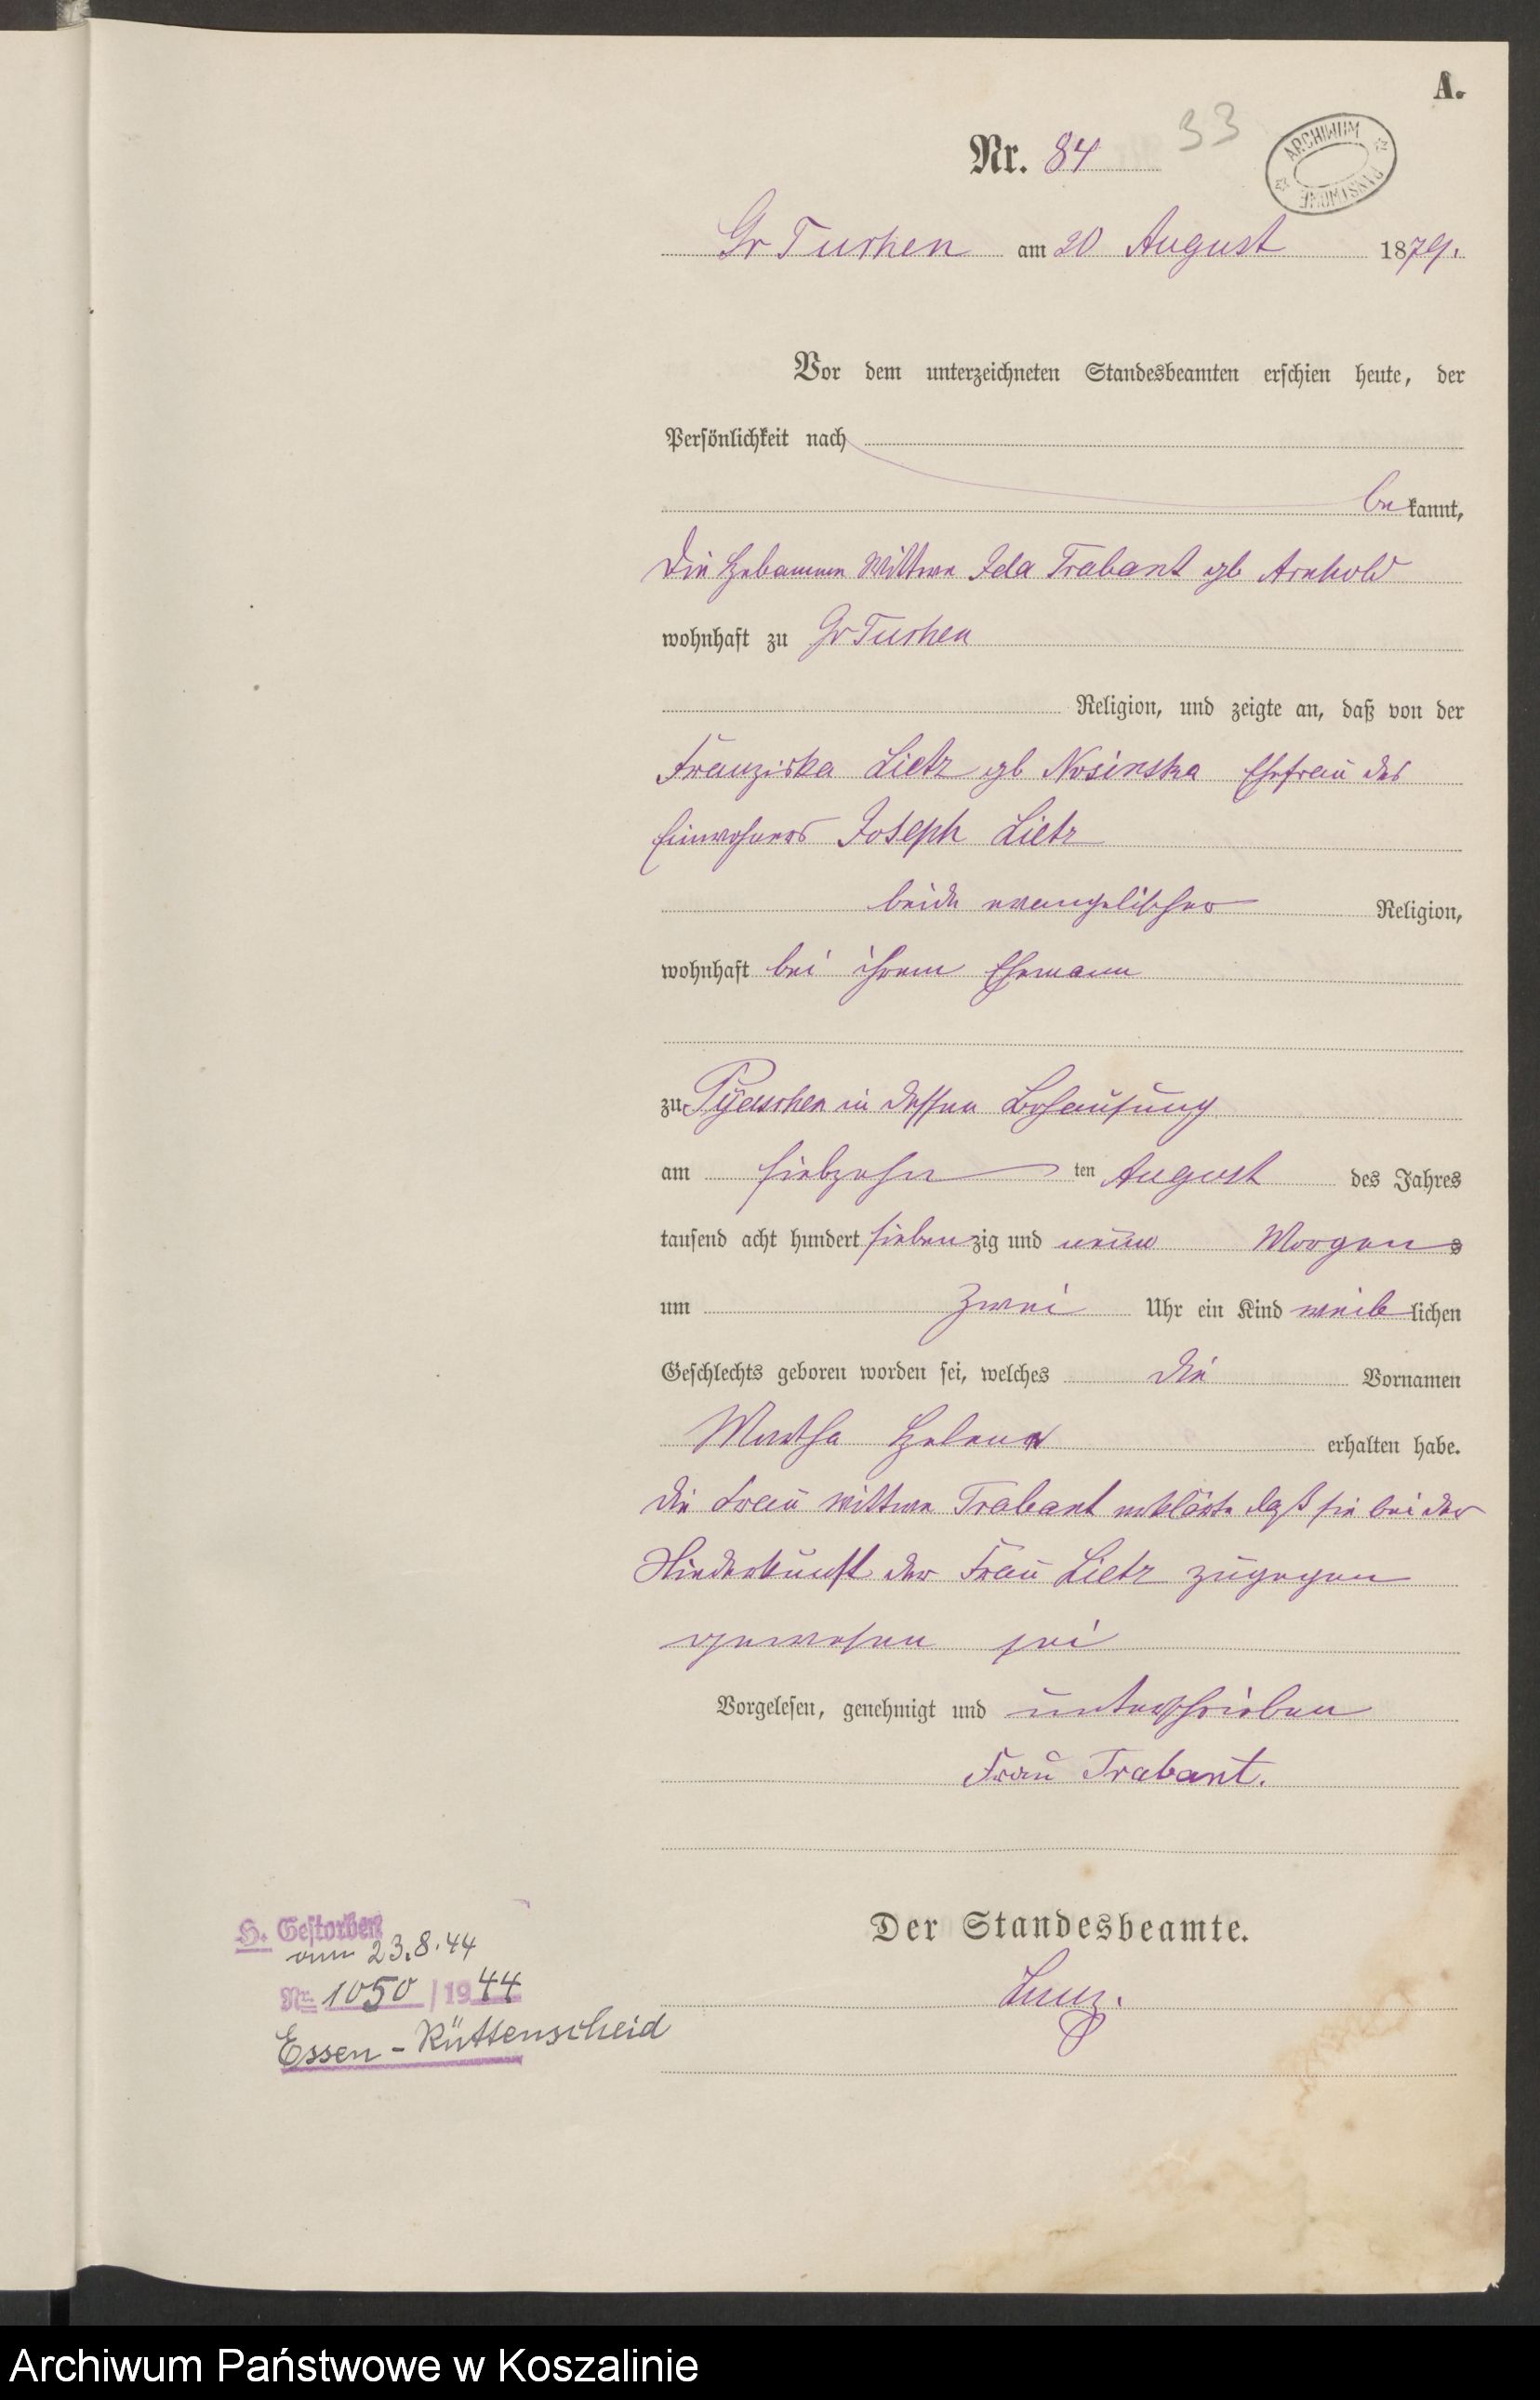 A.
Nr. 84
33
ARCHIWUM PAŃSTWOWE
Gr Tuchen am 20 August 1879.
Vor dem unterzeichneten Standesbeamten erschien heute, der
Persönlichkeit nach
bekannt,
die Hebamme Wittwe Ida Trabant gb Arnhold
wohnhaft zu Gr Tuchen
Religion, und zeigte an, daß von der
Franziska Lietz gb Nosinska Ehefrau des
Einwohners Joseph Lietz
beide evangelischer Religion,
wohnhaft bei ihrem Ehemann
zu Pyaschen in dessen Behausung
am siebzehnten August des Jahres
tausend acht hundert siebenzig und neun Morgens
um zwei Uhr ein Kind weiblichen
Geschlechts geboren worden sei, welches die Vornamen
Martha Helena erhalten habe.
die Frau Wittwe Trabant erklärte daß sie bei der
Niederkunft der Frau Lietz zugegen
gewesen sei
Vorgelesen, genehmigt und unterschrieben
Frau Trabant.
Der Standesbeamte.
H. Gestorben
am 23.8.44
Nr. 1050/1944
Essen-Rüttenscheid
Archiwum Państwowe w Koszalinie